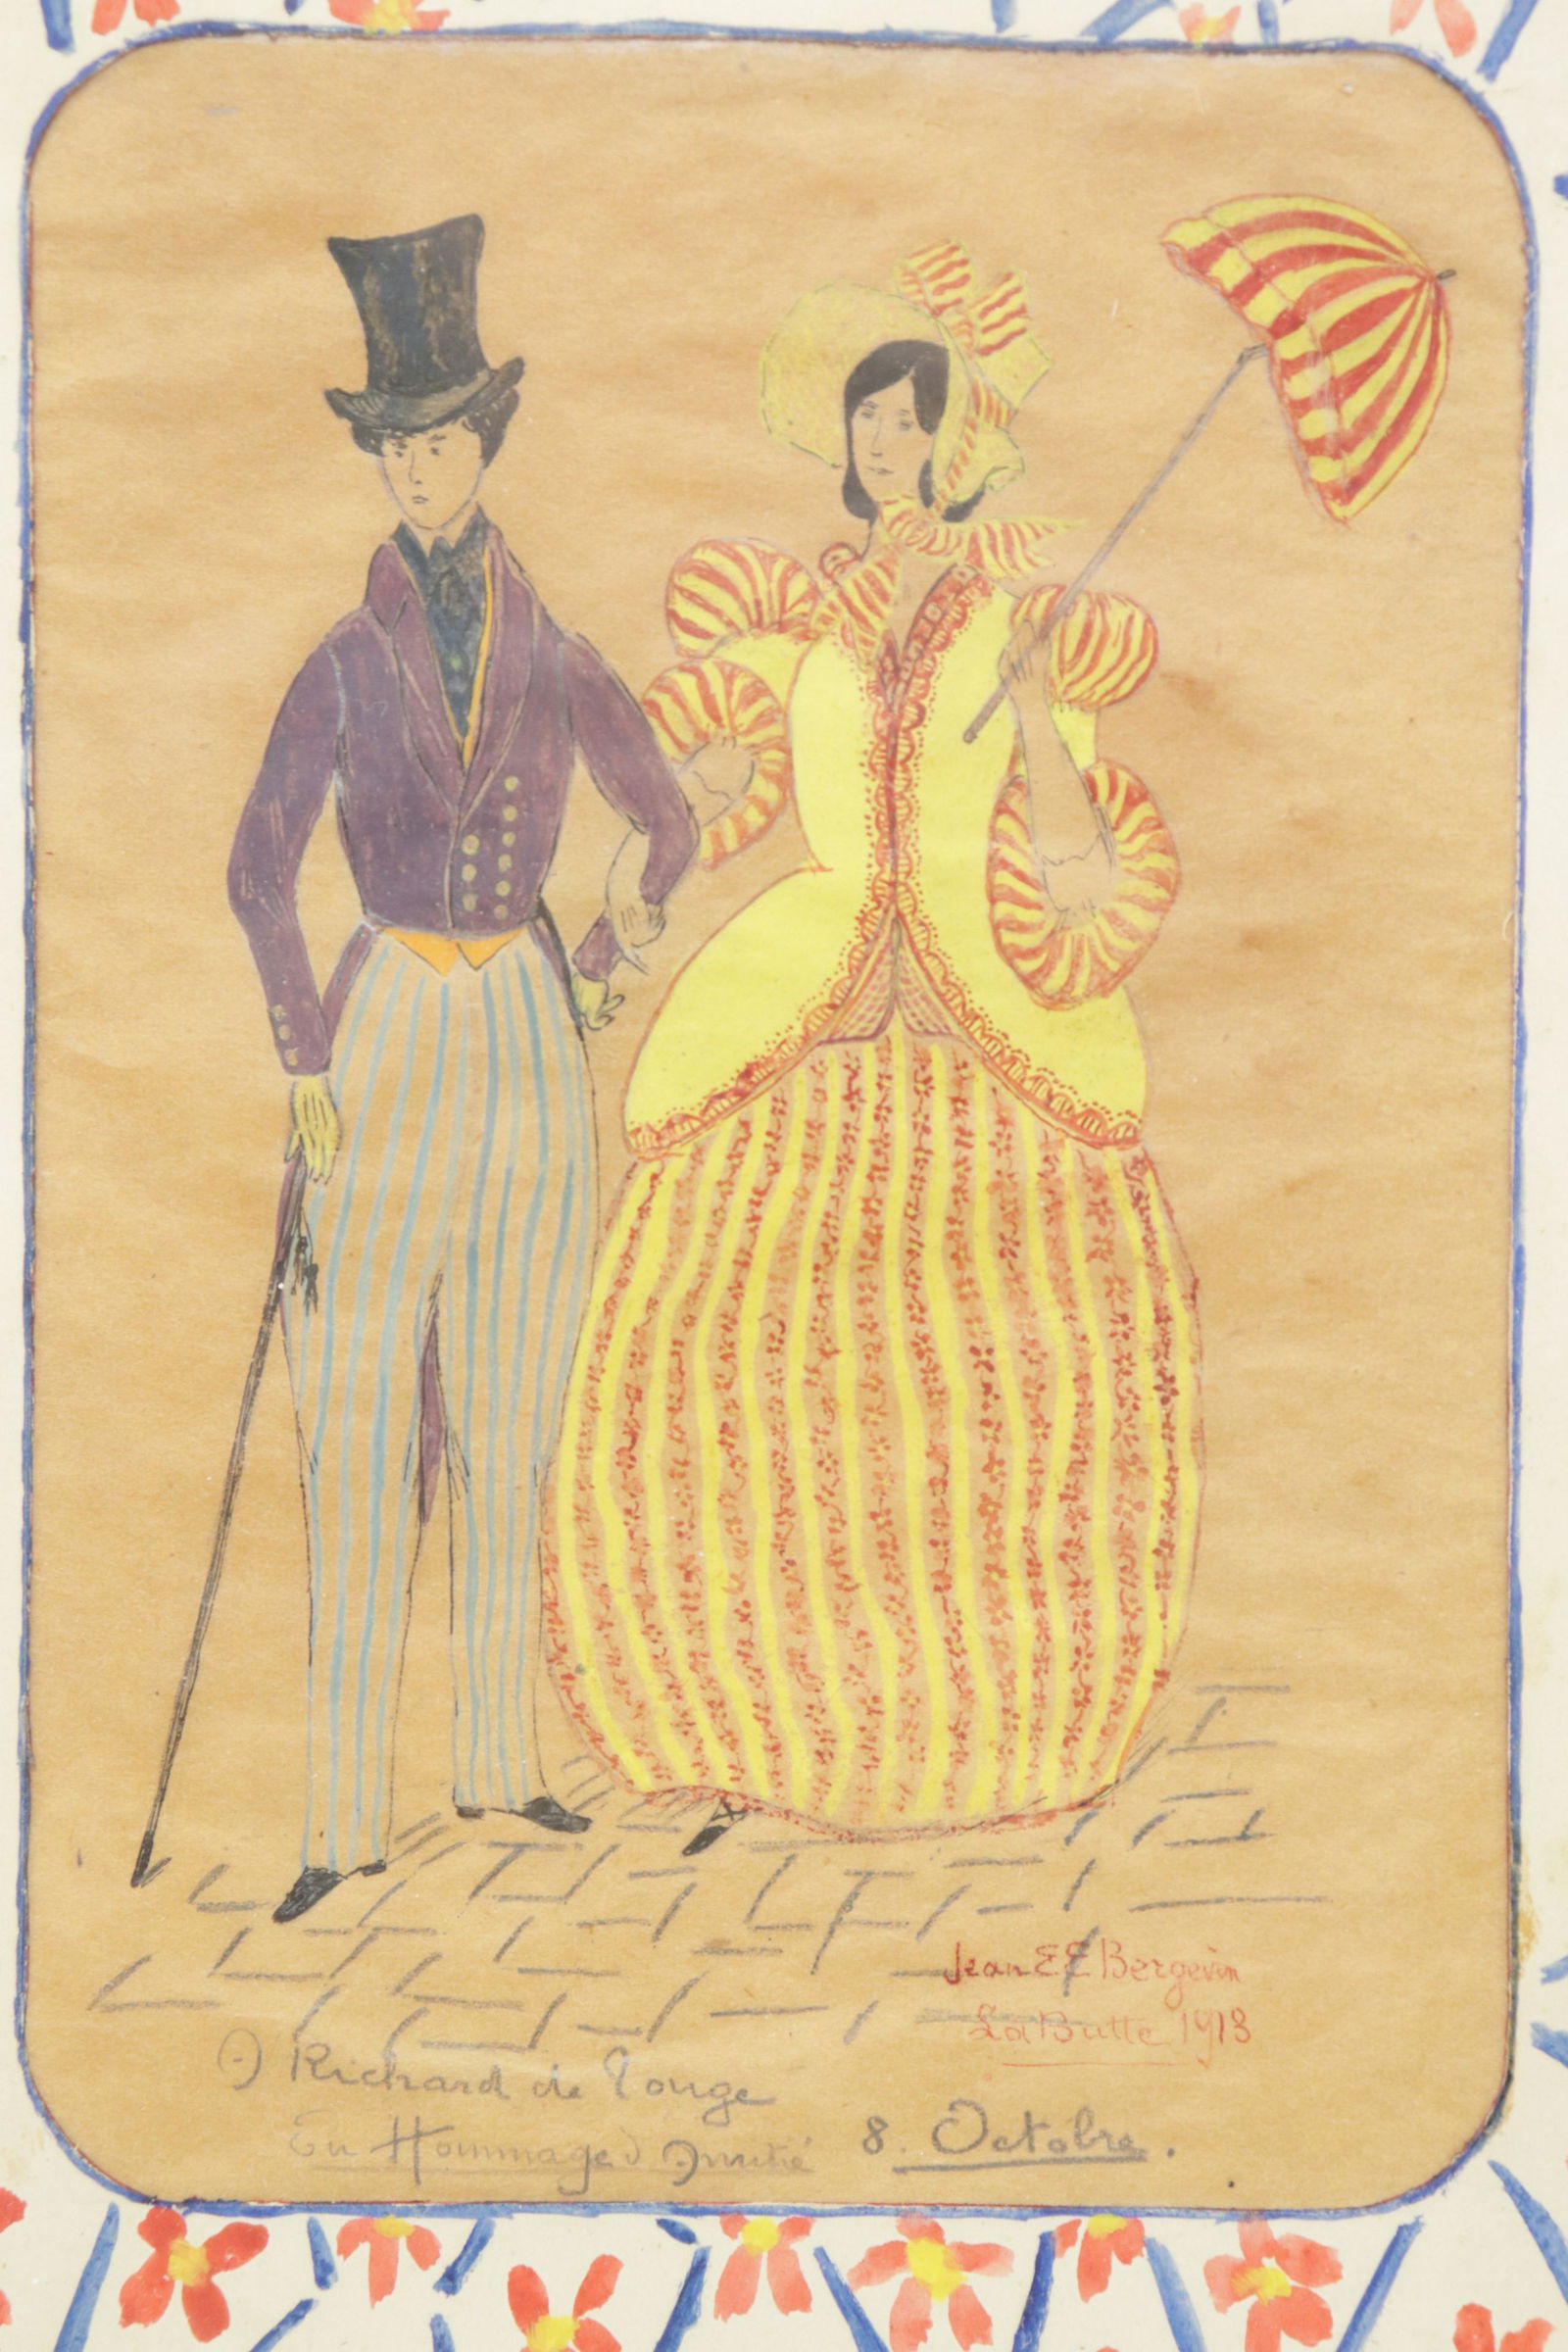 Jean E E Bergevin
La Butte 1913
A Richard de Rouge
En Hommage d'Amitié 8. Octobre.